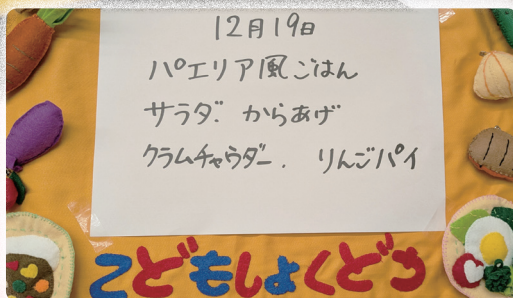 12月19日
パエリア風ごはん
サラダ. からあげ
クラムチャウダー. りんごパイ
こどもしょくどう